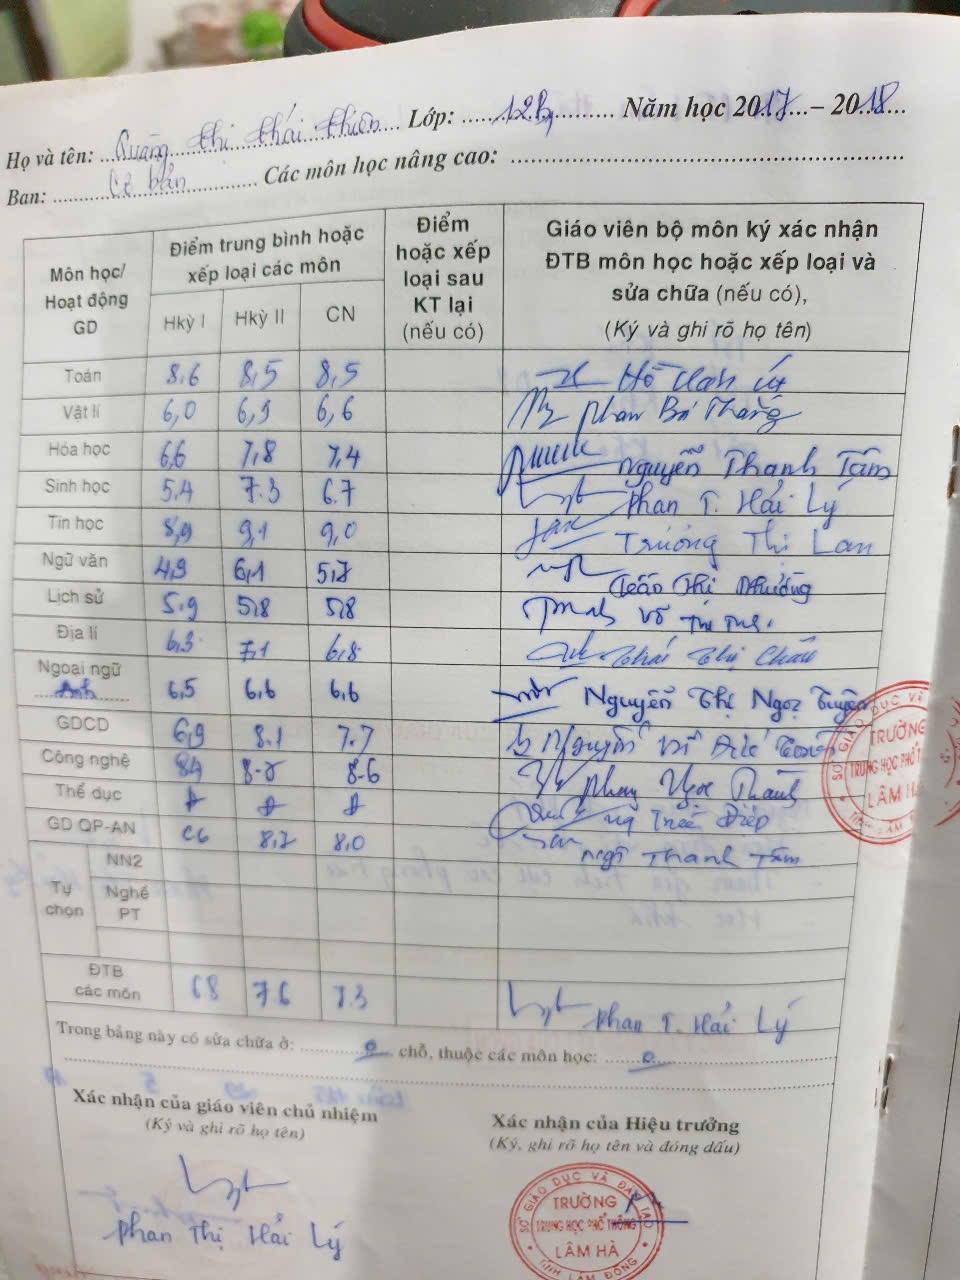 Họ và tên: Quảng thị thái thiên Lớp: 12B4 Năm học 2017 – 2018
Ban: Cơ bản Các môn học nâng cao:
Môn học/ Hoạt động GD
Điểm trung bình hoặc xếp loại các môn
Hkỳ I Hkỳ II CN
Điểm hoặc xếp loại sau KT lại (nếu có)
Giáo viên bộ môn ký xác nhận ĐTB môn học hoặc xếp loại và sửa chữa (nếu có),
(Ký và ghi rõ họ tên)
Toán 8,6 8,5 8,5 Hồ
Vật lí 6,0 6,9 6,6 Phan Bá Thắng
Hóa học 6,6 7,8 7,4 Nguyễn Thanh Tâm
Sinh học 5.4 7.3 6.7 Phan T. Hải Lý
Tin học 8,9 9,1 9,0 Trương Thị Lan
Ngữ văn 4,9 6,1 5,7 Thị
Lịch sử 5.9 5,8 5,8 Võ
Địa lí 6,3 7,1 6,8 Thái Thị Châu
Ngoại ngữ Anh 6,5 6,6 6,6 Nguyễn Thị Ngọc Tuyền
GDCD 6,9 8.1 7.7 Nguyễn
Công nghệ 8,4 8-6 Phan Ngọc Thành
Thể dục Đ Đ Đ Điệp
GD QP-AN 8,0 Ngô Thanh Tâm
Tự chọn
NN2
Nghề PT
ĐTB các môn 6.8 7.6 7.3 Phan T. Hải Lý
Trong bảng này có sửa chữa ở: 0 chỗ, thuộc các môn học: 0
Xác nhận của giáo viên chủ nhiệm
(Ký và ghi rõ họ tên)
Phan Thị Hải Lý
Xác nhận của Hiệu trưởng
(Ký, ghi rõ họ tên và đóng dấu)
SỞ GIÁO DỤC VÀ
TRƯỜNG
TRUNG HỌC PHỔ
LÂM HÀ
SỞ GIÁO DỤC VÀ ĐÀO TẠO
TRƯỜNG
TRUNG HỌC PHỔ THÔNG
LÂM HÀ
TỈNH LÂM ĐỒNG